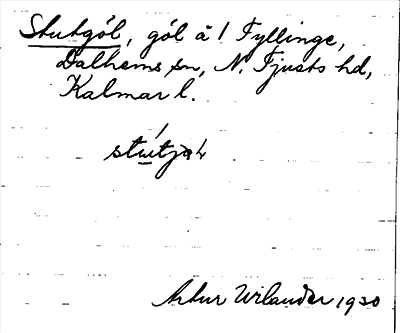 Stutgól, gól å 1 Fyllinge,
Dalhems sn, N. Tjusts hd,
Kalmar l.
Artur Wilander 1930